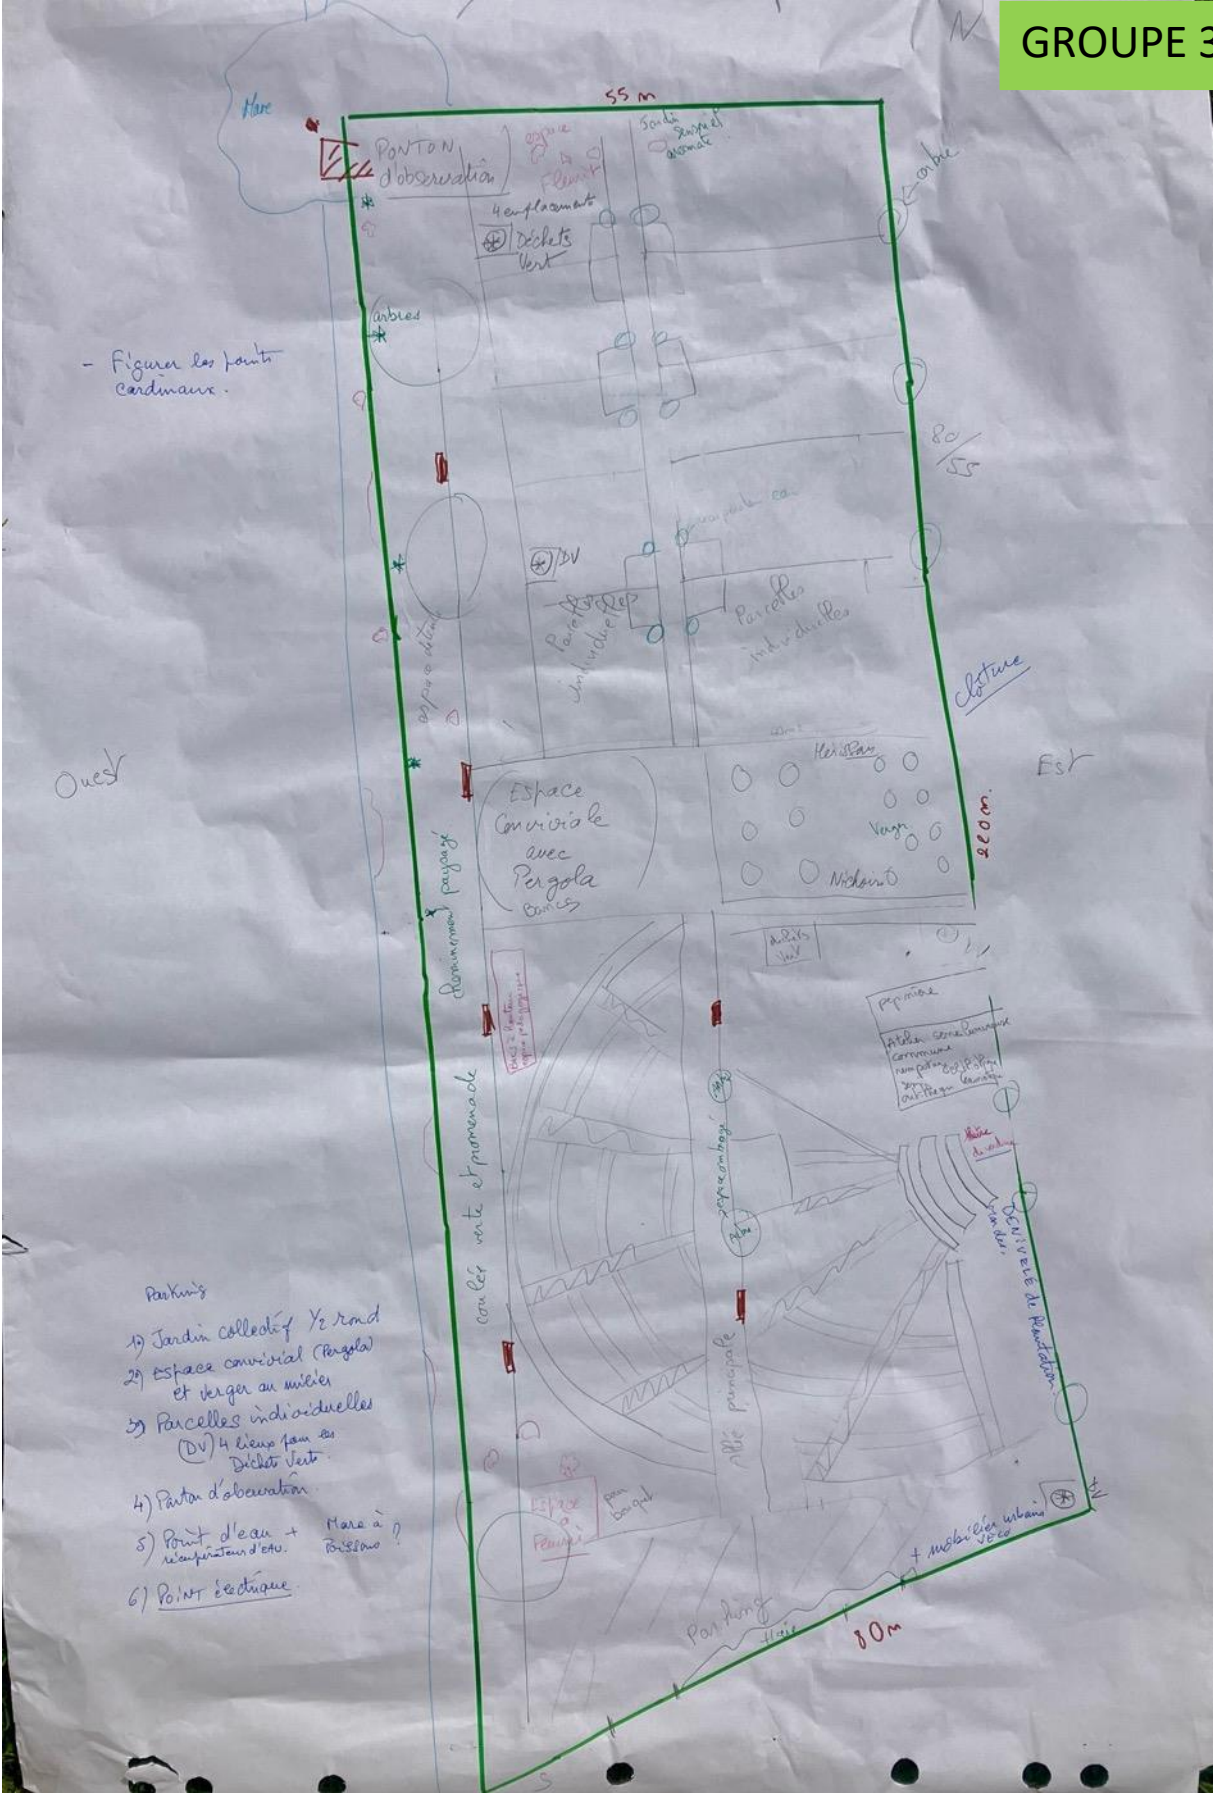 GROUPE 3
N
55 m
Mare
PONTON
d'observation
espace
Fleurit
Jardin
aromate
arbre
4 emplacements
Déchets
Vert
arbres
- Figurer les points
cardinaux.
80/55
DV
espace détente
Parcelles
individuelles
Parcelles
individuelles
clôture
Ouest
Est
220 m.
Espace
Conviviale
avec
Pergola
Bancs
Herisson
Verger
Nichoirs
cheminement paysagé
déchets
vert
pépinière
Atelier
commune
rempotage
coulée verte et promenade
espace ombragé
DENIVELÉ de Plantation
allée principale
Parking
1) Jardin collectif 1/2 rond
2) Espace convivial (Pergola)
et verger au milieu
3) Parcelles individuelles
(DV) 4 lieux pour les
Déchets Verts.
4) Ponton d'observation.
5) Point d'eau + Mare à
récupérateur d'eau. Poissons ?
6) POINT électrique.
Espace
Fleuri
pour
bouquet
+ mobilier urbain
DV
Parking
Haie
80m
S